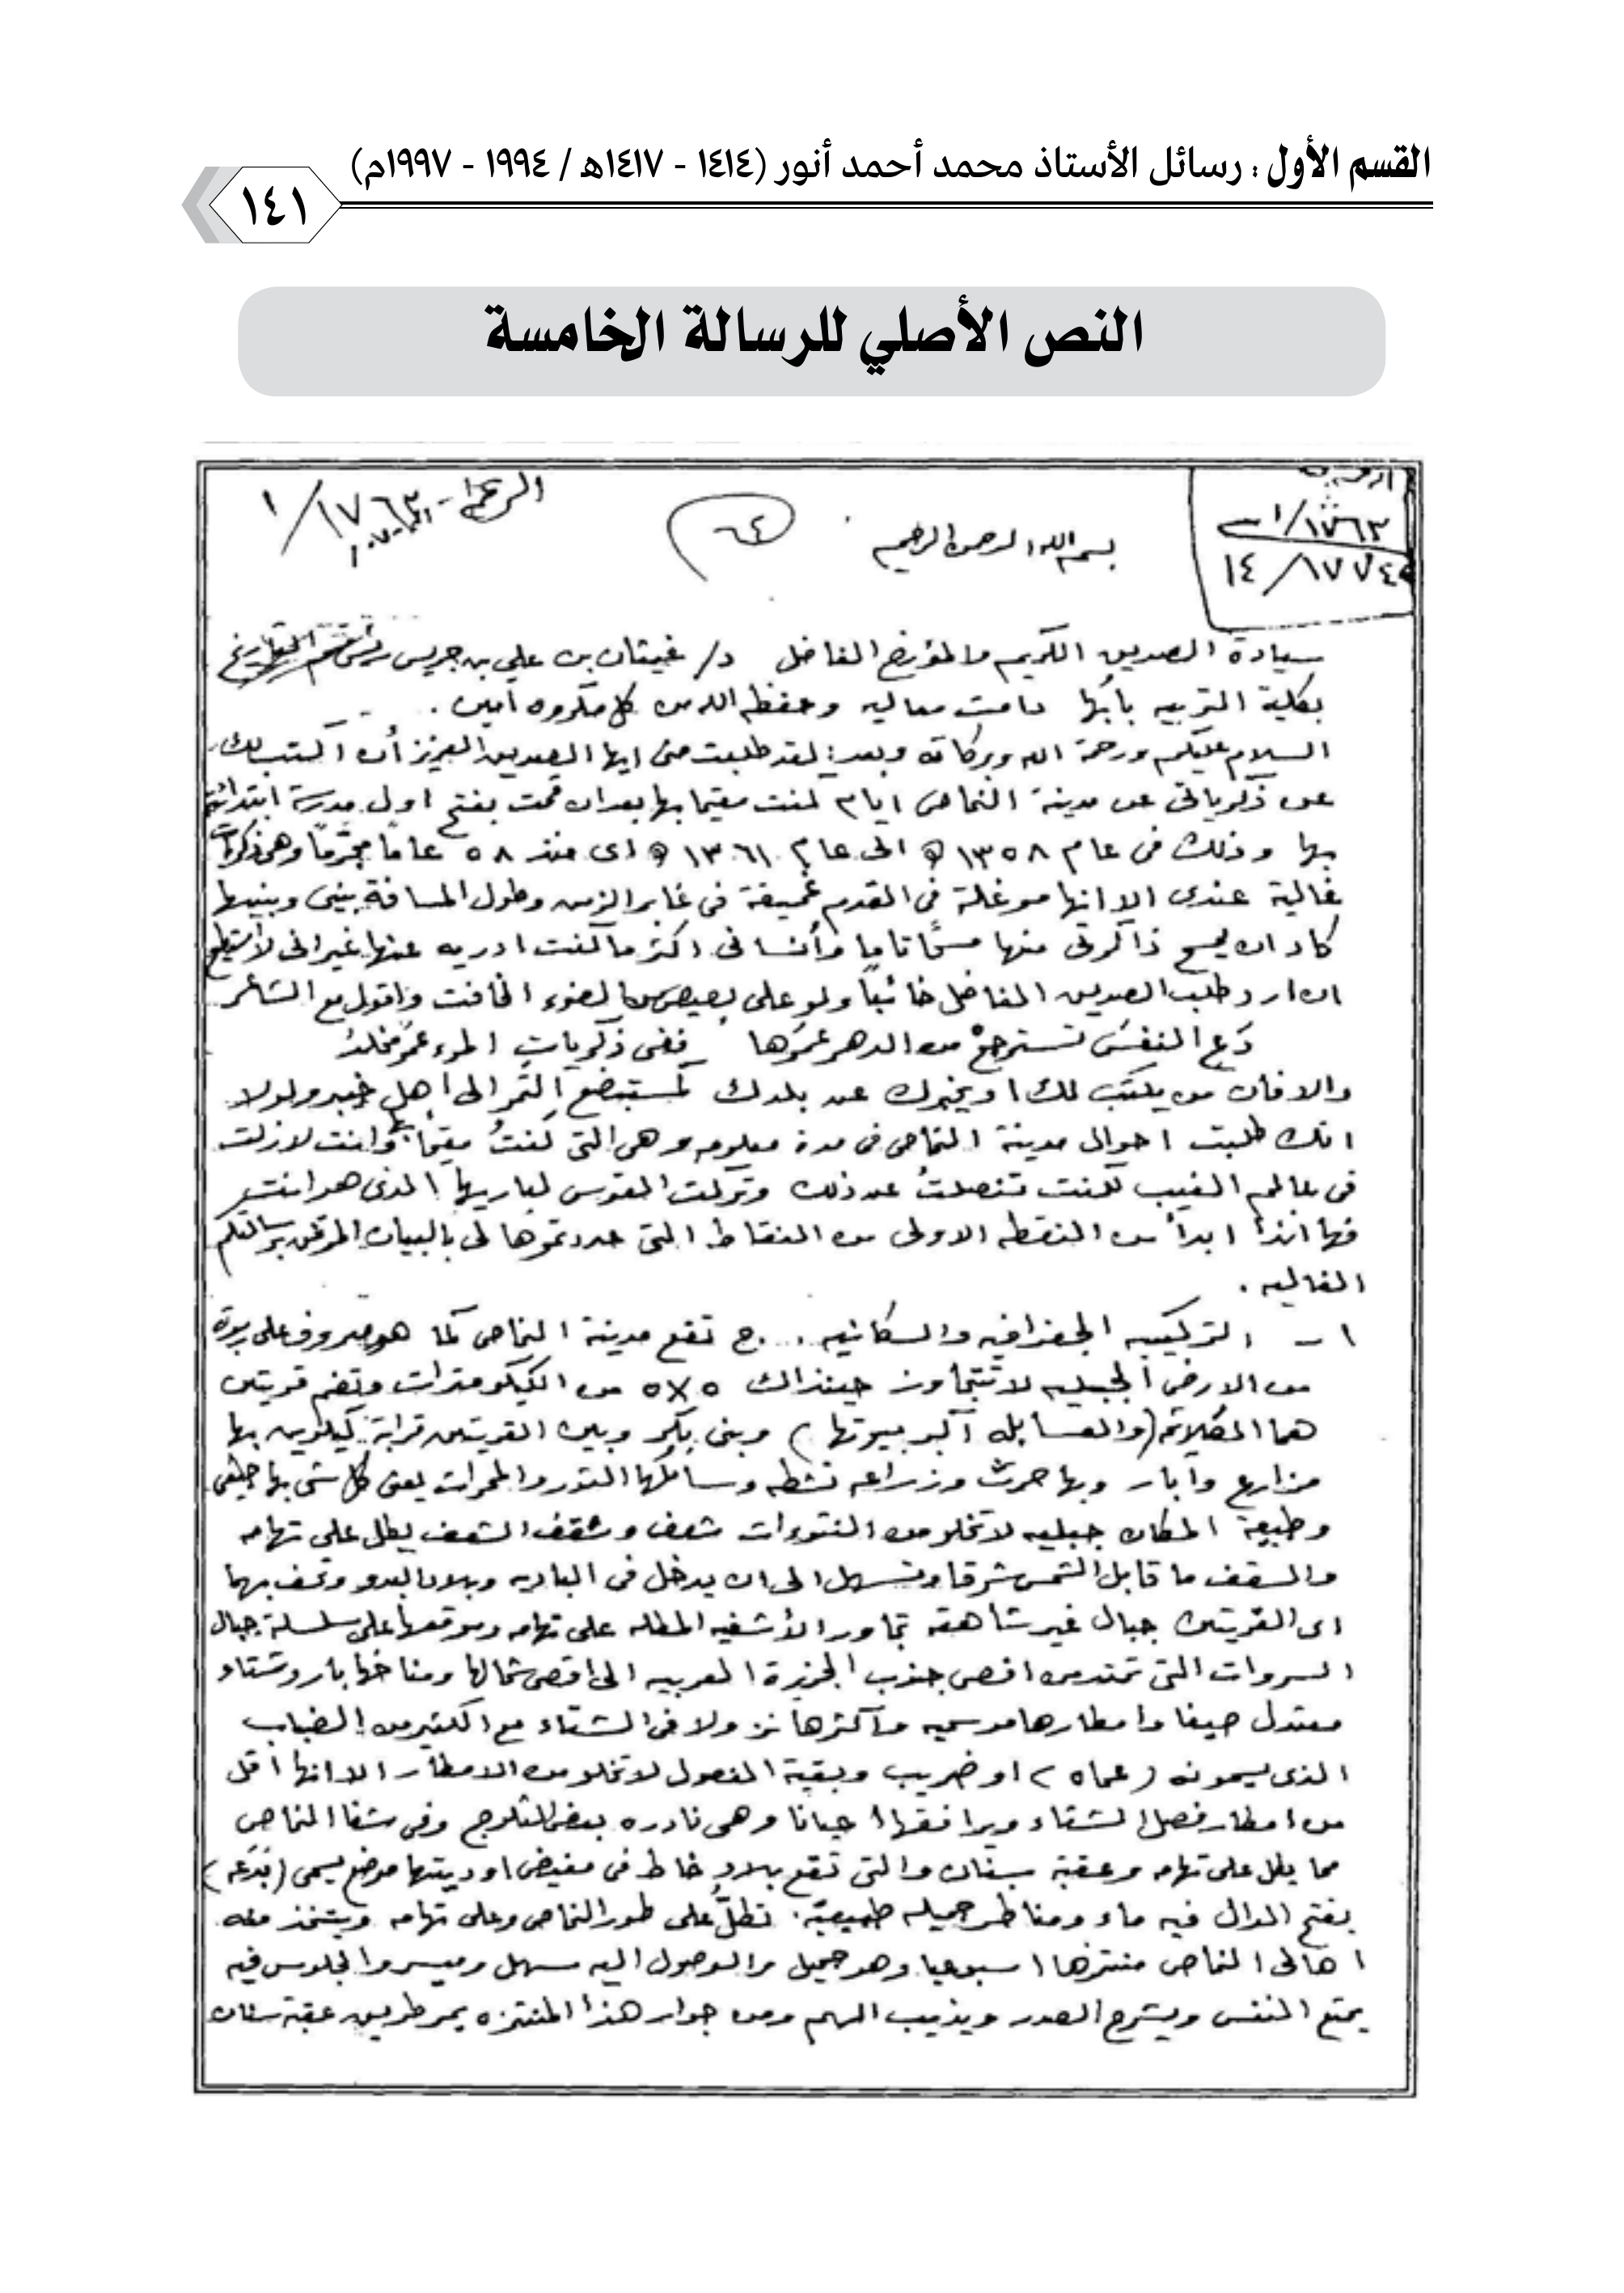 القسم الأول : رسائل الأستاذ محمد أحمد أنور (١٤١٤ - ١٤١٧هـ / ١٩٩٤ - ١٩٩٧م)
١٤١
النص الأصلي للرسالة الخامسة
١/١٧٦٣
١٤/١٧٧٤
بسم الله الرحمن الرحيم
٦٤
الرقم - ١٧٦٣/١
سيادة الصديق الكريم والمؤرخ الفاضل د/ غيثان بن علي بن جريس رئيس قسم التاريخ
بكلية التربيه بأبها دامت معاليه وحفظه الله من كل مكروه آمين .
السلام عليكم ورحمة الله وبركاته وبعد: لقد طلبت منى ايها الصديق العزيز أن اكتب لك
عن ذكرياتى عن مدينة النماص ايام كنت مقيما بها بعد ان قمت بفتح اول مدرسة ابتدائية
بها وذلك فى عام ١٣٥٨ ه الى عام ١٣٦١ ه اى منذ ٥٨ عاماً مجرّماً وهى ذكريات
غالية عندى الا انها موغلة فى القدم عميقة فى غابر الزمن وطول المسافة بينى وبينها
كاد ان يمسح ذاكرتى منها مسحًا تاما وأنسانى اكثر ما كنت ادريه عنها غير انى لا استطيع
ان ارد طلب الصديق الفاضل خائباً ولو على بصيص من الضوء الخافت واقول مع الشاعر
دَع النفسَ تسترجعْ من الدهر عمرَها ففى ذكرياتِ المرء عمرٌ مخلدُ
والا فان من يكتب لك او يخبرك عن بلدك كمستبضع التمر الى اهل خيبر ولولا
انك طلبت احوال مدينة النماص فى مدة معلومه وهى التى كنتُ مقيمًا بها وانت لازلت
فى عالم الغيب لكنت تنصلتُ عن ذلك وتركت القوس لباريها الذى هو انت
فها انذا ابدأ من النقطه الاولى من النقاط التى حددتموها لى بالبيان المرفق برسالتكم
الغاليه .
١ - التركيبه الجغرافيه والسكانيه ... ج تقع مدينة النماص كما هو معروف على ربوة
من الارض الجبليه لا تتجاوز حينذاك ٥×٥ من الكيلومترات وتضم قريتين
هما الكلاثمه (والعسابله آكبر بيوتها) وبنى بكر وبين القريتين قرابة كيلوين بها
مزارع وآبار وبها حرث وزراعه نشطه وسائلها الثور والمحراث يعنى كل شى بها حقيقى
وطبيعة المكان جبليه لا تخلو من النتوءات شعف وشقف الشعف يطل على تهامه
والسقف ما قابل الشمس شرقا وتسهل الى ان يدخل فى الباديه وبلاد البدو وتحف بهما
اى القريتين جبال غير شاهقه تجاور الأشفيه المطله على تهامه وموقعها على سلسلة جبال
السروات التى تمتد من اقصى جنوب الجزيرة العربيه الى اقصى شمالها ومناخها بارد شتاء
معتدل صيفا وامطارها موسميه وآكثرها نزولا فى الشتاء مع الكثير من الضباب
الذى يسمونه (عماه) او ضريب وبقية الفصول لا تخلو من الامطار الا انها اقل
من امطار فصل الشتاء ويرافقها احيانا وهى نادره بعض الثلوج وفى شفا النماص
مما يطل على تهامه وعقبة سنان والتى تقع بلاد خاط فى مفيض اوديتها موضع يسمى (بَدَعَه)
بفتح الدال فيه ماء ومناظر جميله طبيعيّة . تطلُّ على طور النماص وعلى تهامه ويتخذ منه
اهالى النماص منتزها اسبوعيا وهو جميل والوصول اليه سهل وميسر والجلوس فيه
يمتع النفس ويشرح الصدر ويذيب الهم ومن جوار هذا المنتزه يمر طريق عقبة سنان